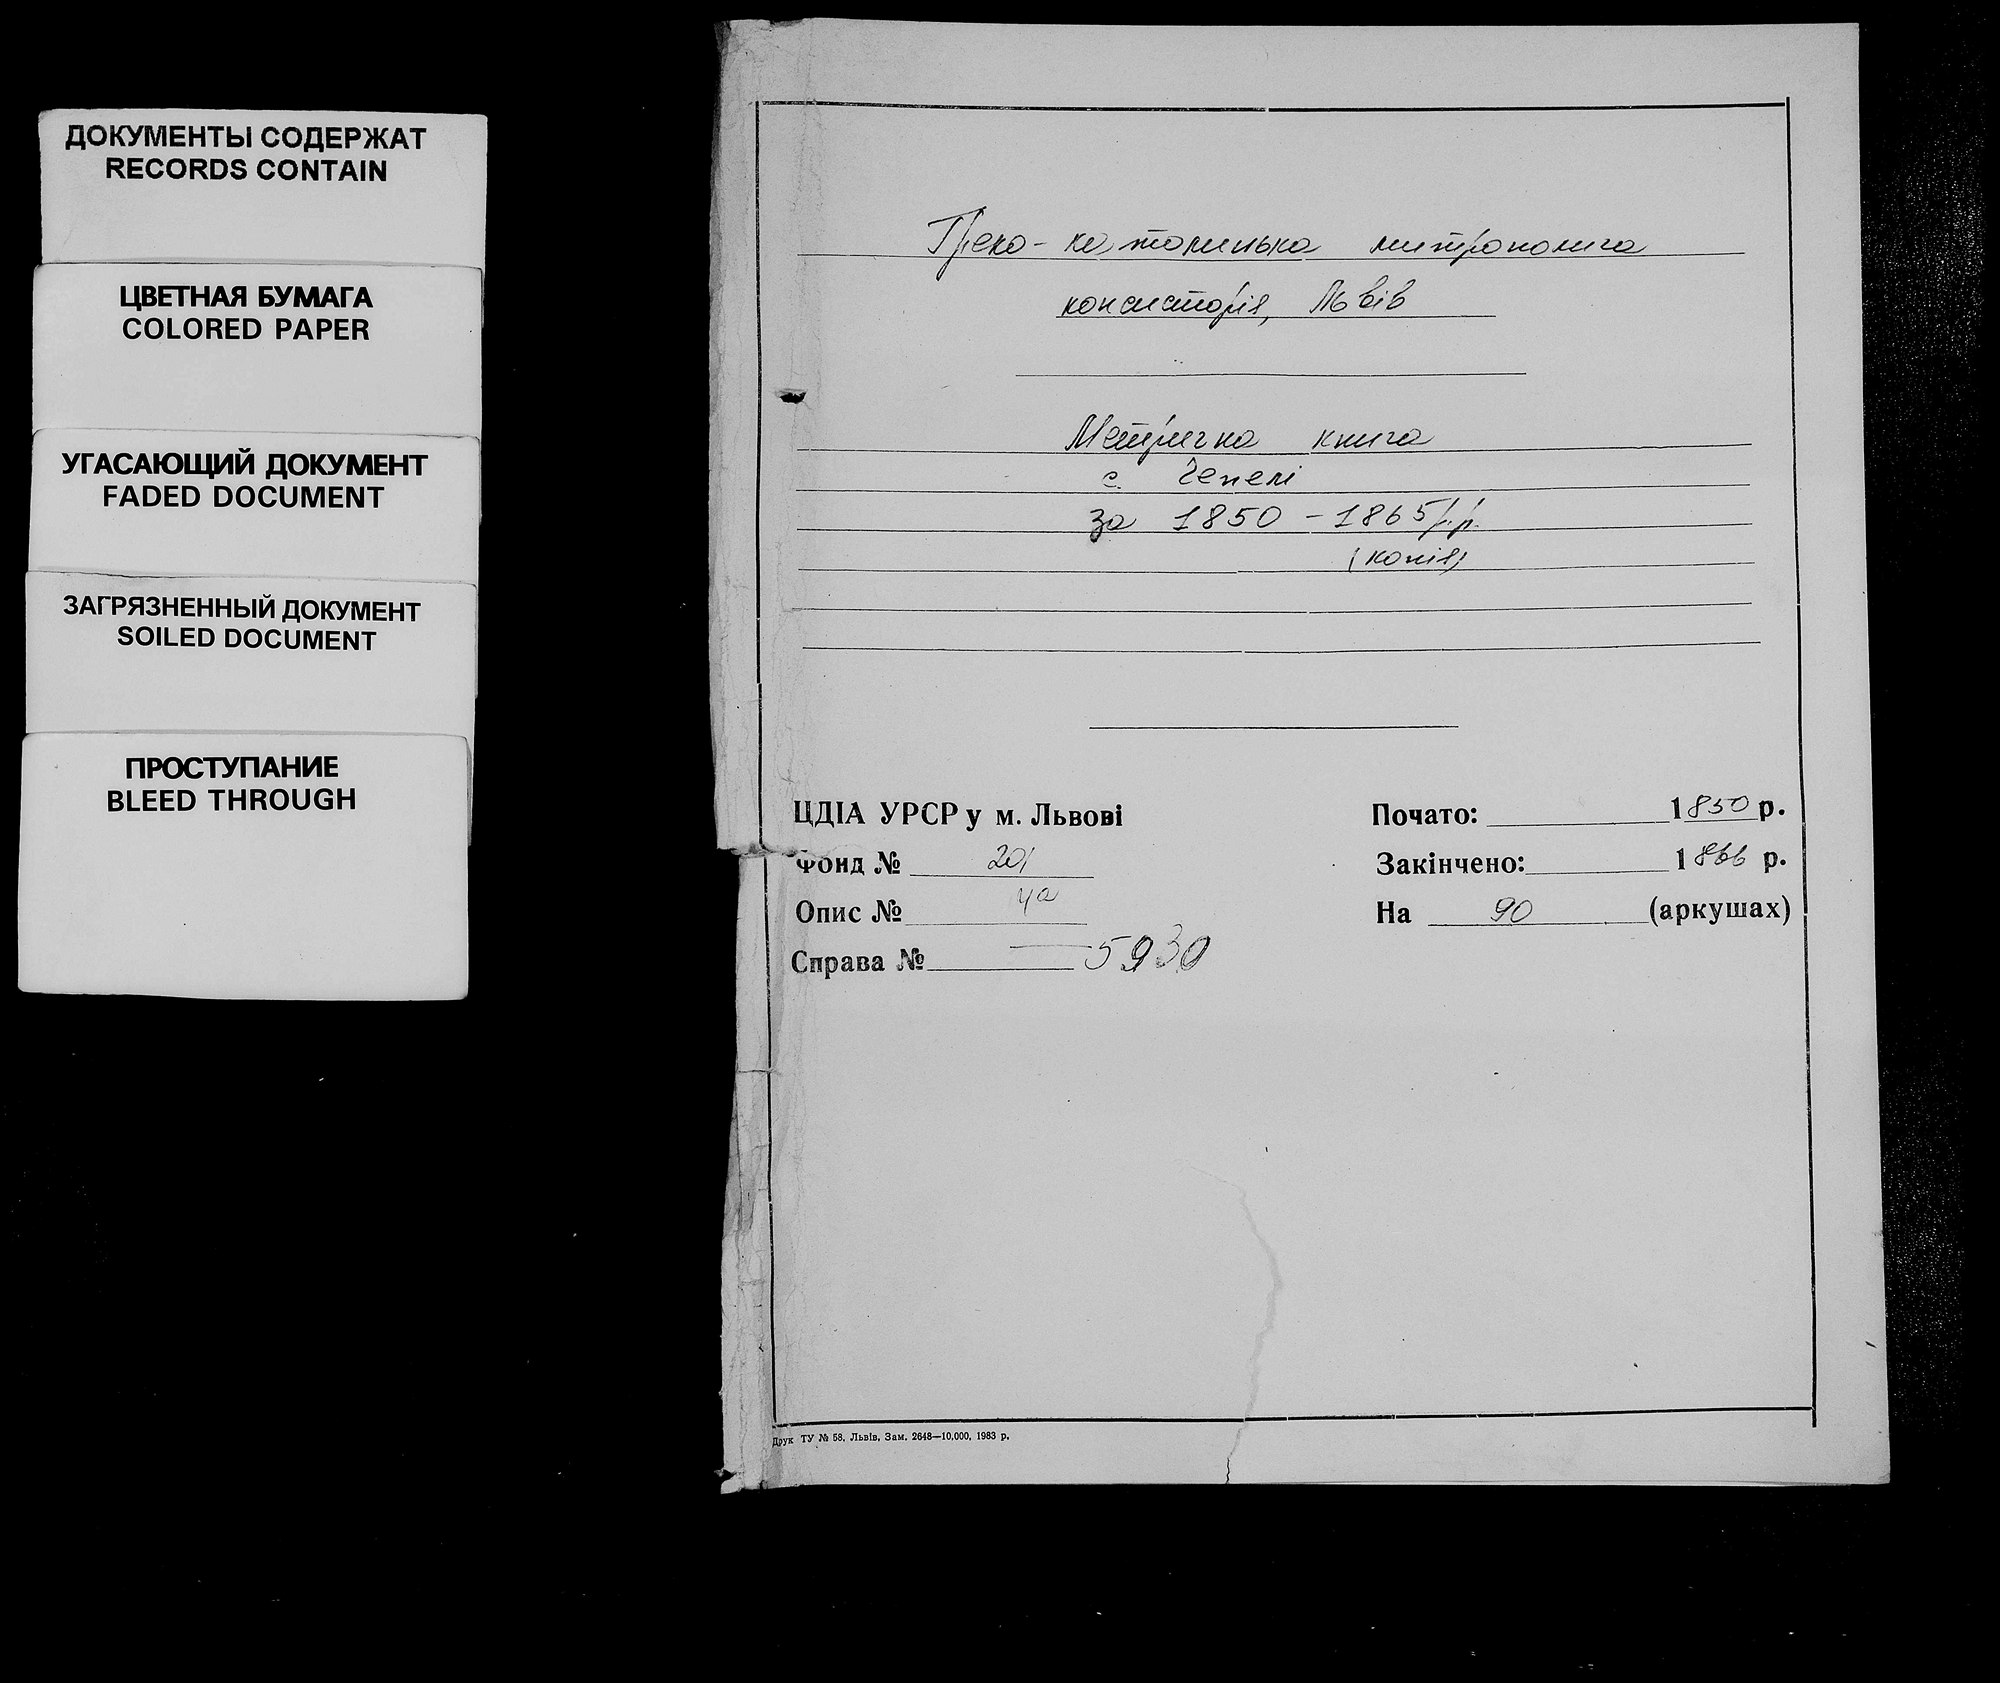 ДОКУМЕНТЫ СОДЕРЖАТ
RECORDS CONTAIN
ЦВЕТНАЯ БУМАГА
COLORED PAPER
УГАСАЮЩИЙ ДОКУМЕНТ
FADED DOCUMENT
ЗАГРЯЗНЕННЫЙ ДОКУМЕНТ
SOILED DOCUMENT
ПРОСТУПАНИЕ
BLEED THROUGH
Греко-католицька митрополича
консисторія, Львів
Метрична книга
с. Чепелі
за 1850-1865 р.р.
(копія)
ЦДІА УРСР у м. Львові
Фонд № 201
Опис № 4а
Справа № 5930
Почато: 1850 р.
Закінчено: 1866 р.
На 90 (аркушах)
Друк ТУ № 58. Львів. Зам. 2648—10,000, 1983 р.